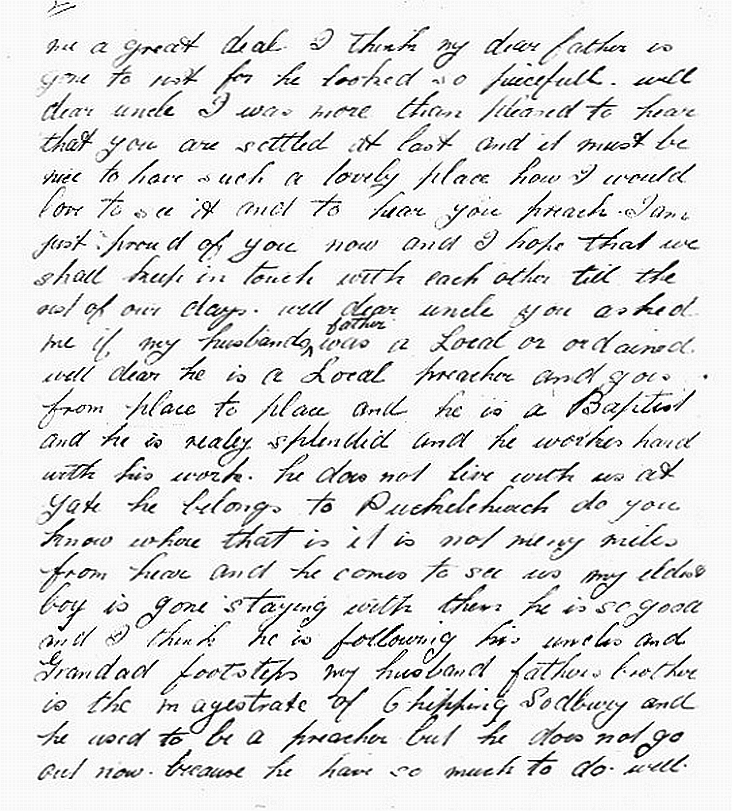 me a great deal. I think my dear father is
gone to rest for he looked so piecefull. well
dear uncle I was more than pleased to hear
that you are settled at last and it must be
nice to have such a lovely place how I would
love to see it and to hear you preach. I am
just proud of you now and I hope that we
shall keep in touch with each other till the
rest of our days. well dear uncle you asked
me if my husbands father was a Local or ordained.
well dear he is a Local preacher and goes
from place to place and he is a Baptist
and he is realey splendid and he workes hard
with his work. he does not live with us at
Yate he belongs to Puckelchurch do you
know where that is it is not meny miles
from hear and he comes to see us my eldest
boy is gone staying with them he is so good
and I think he is following his uncles and
Grandad footsteps my husband fathers brother
is the magestrate of Chipping Sodbury and
he used to be a preacher but he does not go
out now. because he have so much to do. well.